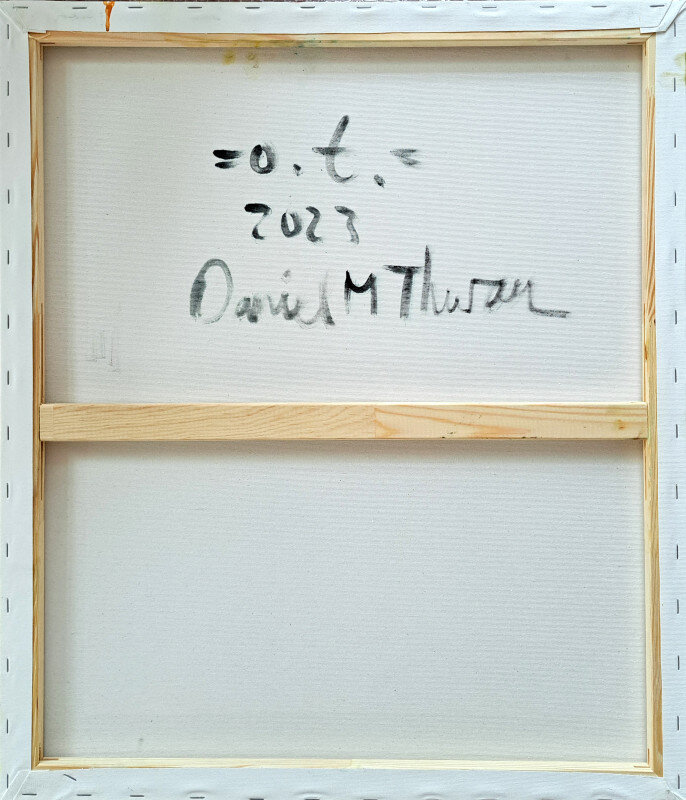 =o.t.=
2023
Daniel M Thurau